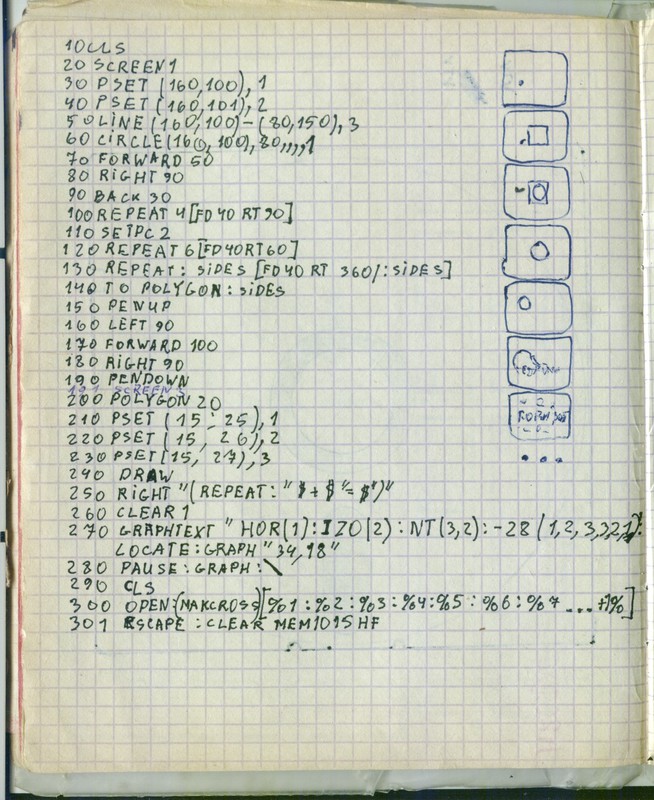 10 CLS
20 SCREEN 1
30 PSET (160,100), 1
40 PSET (160,101), 2
50 LINE (160,100)-(80,150), 3
60 CIRCLE(160, 100), 80,,,,1
70 FORWARD 50
80 RIGHT 90
90 BACK 30
100 REPEAT 4 [FD 40 RT 90]
110 SETPC 2
120 REPEAT 6 [FD 40 RT 60]
130 REPEAT: SIDES [FD 40 RT 360/:SIDES]
140 TO POLYGON: SIDES
150 PENUP
160 LEFT 90
170 FORWARD 100
180 RIGHT 90
190 PENDOWN
191 SCREEN
200 POLYGON 20
210 PSET (15, 25), 1
220 PSET (15, 26), 2
230 PSET (15, 27), 3
240 DRAW
250 RIGHT "(REPEAT: "$+$"=$")"
260 CLEAR 1
270 GRAPHTEXT "HOR(1):IZO(2):NT(3,2):-28(1,2,3,3,2,1):
LOCATE:GRAPH "34,18"
280 PAUSE:GRAPH:\
290 CLS
300 OPEN:(NAKCROSS)[%1:%2:%3:%4:%5:%6:%7...+1%]
301 ESCAPE:CLEAR MEM1015HF